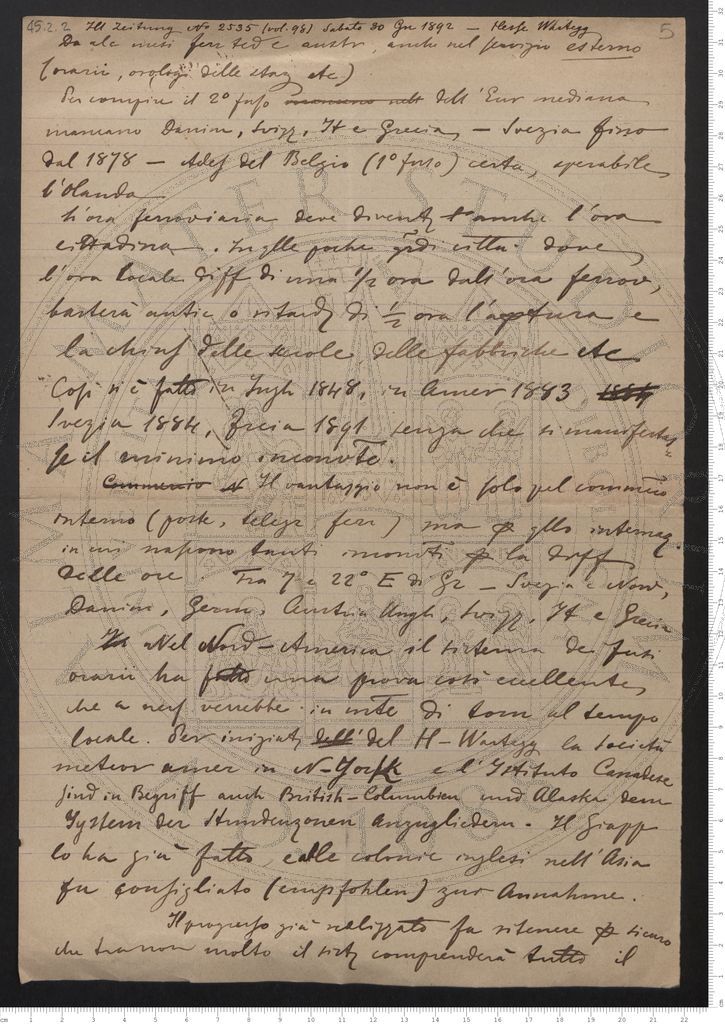 45.2.2 Ill Zeitung No 2535 (vol. 98) Sabato 30 Gn 1892 — Hesse Wartegg 5
Da alc mesi ferr ted e austr, anche nel servizio esterno
(orarii, orologi delle staz etc)
Per compire il 2º fuso dell'Eur mediana
mancano Danim, Svizz, It e Grecia — Svezia fino
dal 1878 — Ades del Belgio (1º fuso) certa, sperabile
l'Olanda
L'ora ferroviaria deve divent anche l'ora
cittadina. In qlle poche grdi città dove
l'ora locale diff di una 1/2 ora dall'ora ferrov,
basterà antic o ritard di 1/2 ora l'aptura e
la chius delle scuole, delle fabbriche etc
Così si è fatto in Ingh 1848, in Amer 1883 1884
Svezia 1884, 1891 senza che si manifestas
se il minimo inconvte.
Commercio Il vantaggio non è solo pel commcio
interno (poste, telegr, ferr) ma p qllo internaz
in cui nascono tanti p la diff
delle ore. Tra 7 e 22º E di Gr — Svezia e Norv,
Danim, Germ, Austria Ungh, Svizz, It e Grecia
Nel Nord-America il sistema dei fusi
orarii ha fatto una prova così eccellente
che a ness verrebbe in mte di torn al tempo
locale. Per iniziat dell' del H-Wartegg la società
meteor amer in N-York e l'Istituto Canadese
sind in Begriff auch British-Columbien und Alaska dem
System der Stundenzonen anzugliedern. Il Giapp
lo ha già fatto, e alle colonie inglesi nell'Asia
fu consigliato (empfohlen) zur Annahme.
Il progresso già realizzato fa ritenere p sicuro
che tra non molto il sist comprenderà tutto il